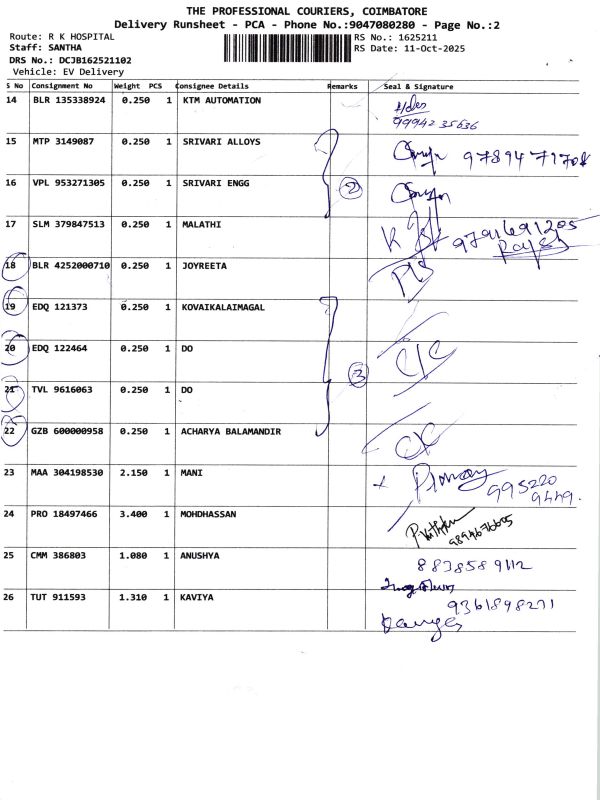 THE PROFESSIONAL COURIERS, COIMBATORE
Delivery Runsheet - PCA - Phone No.:9047080280 - Page No.:2
Route: R K HOSPITAL
RS No.: 1625211
Staff: SANTHA
RS Date: 11-Oct-2025
DRS No.: DCJB162521102
Vehicle: EV Delivery
S No Consignment No Weight PCS Consignee Details Remarks Seal & Signature
14 BLR 135338924 0.250 1 KTM AUTOMATION
9994235636
15 MTP 3149087 0.250 1 SRIVARI ALLOYS
16 VPL 953271305 0.250 1 SRIVARI ENGG 2
17 SLM 379847513 0.250 1 MALATHI
9791691205
18 BLR 4252000710 0.250 1 JOYREETA
19 EDQ 121373 0.250 1 KOVAIKALAIMAGAL
20 EDQ 122464 0.250 1 DO
21 TVL 9616063 0.250 1 DO 3
22 GZB 600000958 0.250 1 ACHARYA BALAMANDIR
23 MAA 304198530 2.150 1 MANI
995220
9449.
24 PRO 18497466 3.400 1 MOHDHASSAN
25 CMM 386803 1.080 1 ANUSHYA
8838589112
26 TUT 911593 1.310 1 KAVIYA
9361898271